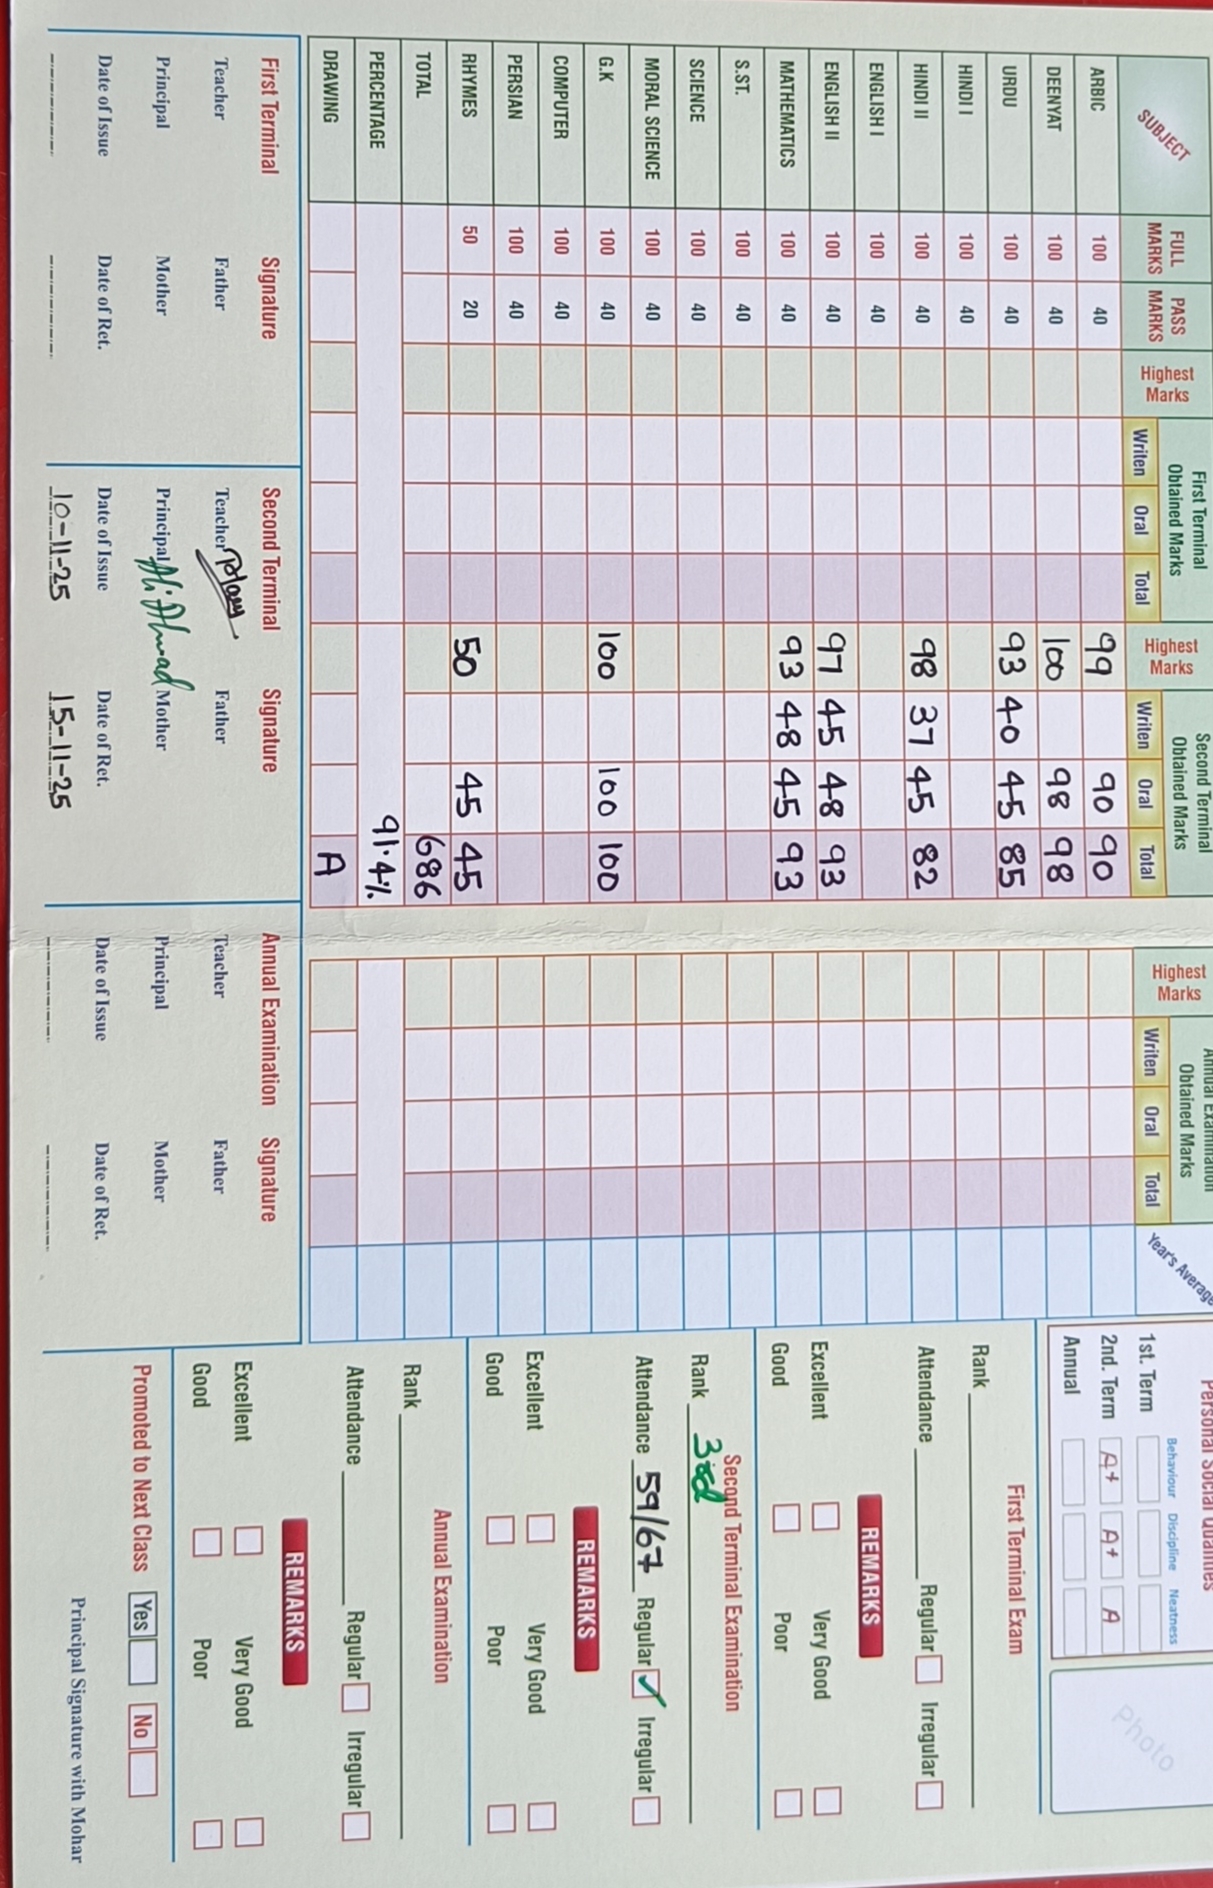 SUBJECT FULL MARKS PASS MARKS Highest Marks First Terminal Obtained Marks Writen Oral Total Highest Marks Second Terminal Obtained Marks Writen Oral Total Highest Marks Annual Examination Obtained Marks Writen Oral Total Year's Average
ARBIC 100 40 99 90 90
DEENYAT 100 40 100 98 98
URDU 100 40 93 40 45 85
HINDI I 100 40
HINDI II 100 40 98 37 45 82
ENGLISH I 100 40
ENGLISH II 100 40 97 45 48 93
MATHEMATICS 100 40 93 48 45 93
S.ST. 100 40
SCIENCE 100 40
MORAL SCIENCE 100 40
G.K 100 40 100 100 100
COMPUTER 100 40
PERSIAN 100 40
RHYMES 50 20 50 45 45
TOTAL 686
PERCENTAGE 91.4%
DRAWING A
First Terminal Signature
Teacher Father
Principal Mother
Date of Issue Date of Ret.
Second Terminal Signature
Teacher Father
Principal Ali Ahmad Mother
Date of Issue Date of Ret.
10-11-25 15-11-25
Annual Examination Signature
Teacher Father
Principal Mother
Date of Issue Date of Ret.
Personal Social Qualities
Behaviour Discipline Neatness
1st. Term
2nd. Term A+ A+ A
Annual
Photo
First Terminal Exam
Rank
Attendance Regular Irregular
REMARKS
Excellent Very Good
Good Poor
Second Terminal Examination
Rank 3rd
Attendance 59/67 Regular Irregular
REMARKS
Excellent Very Good
Good Poor
Annual Examination
Rank
Attendance Regular Irregular
REMARKS
Excellent Very Good
Good Poor
Promoted to Next Class Yes No
Principal Signature with Mohar